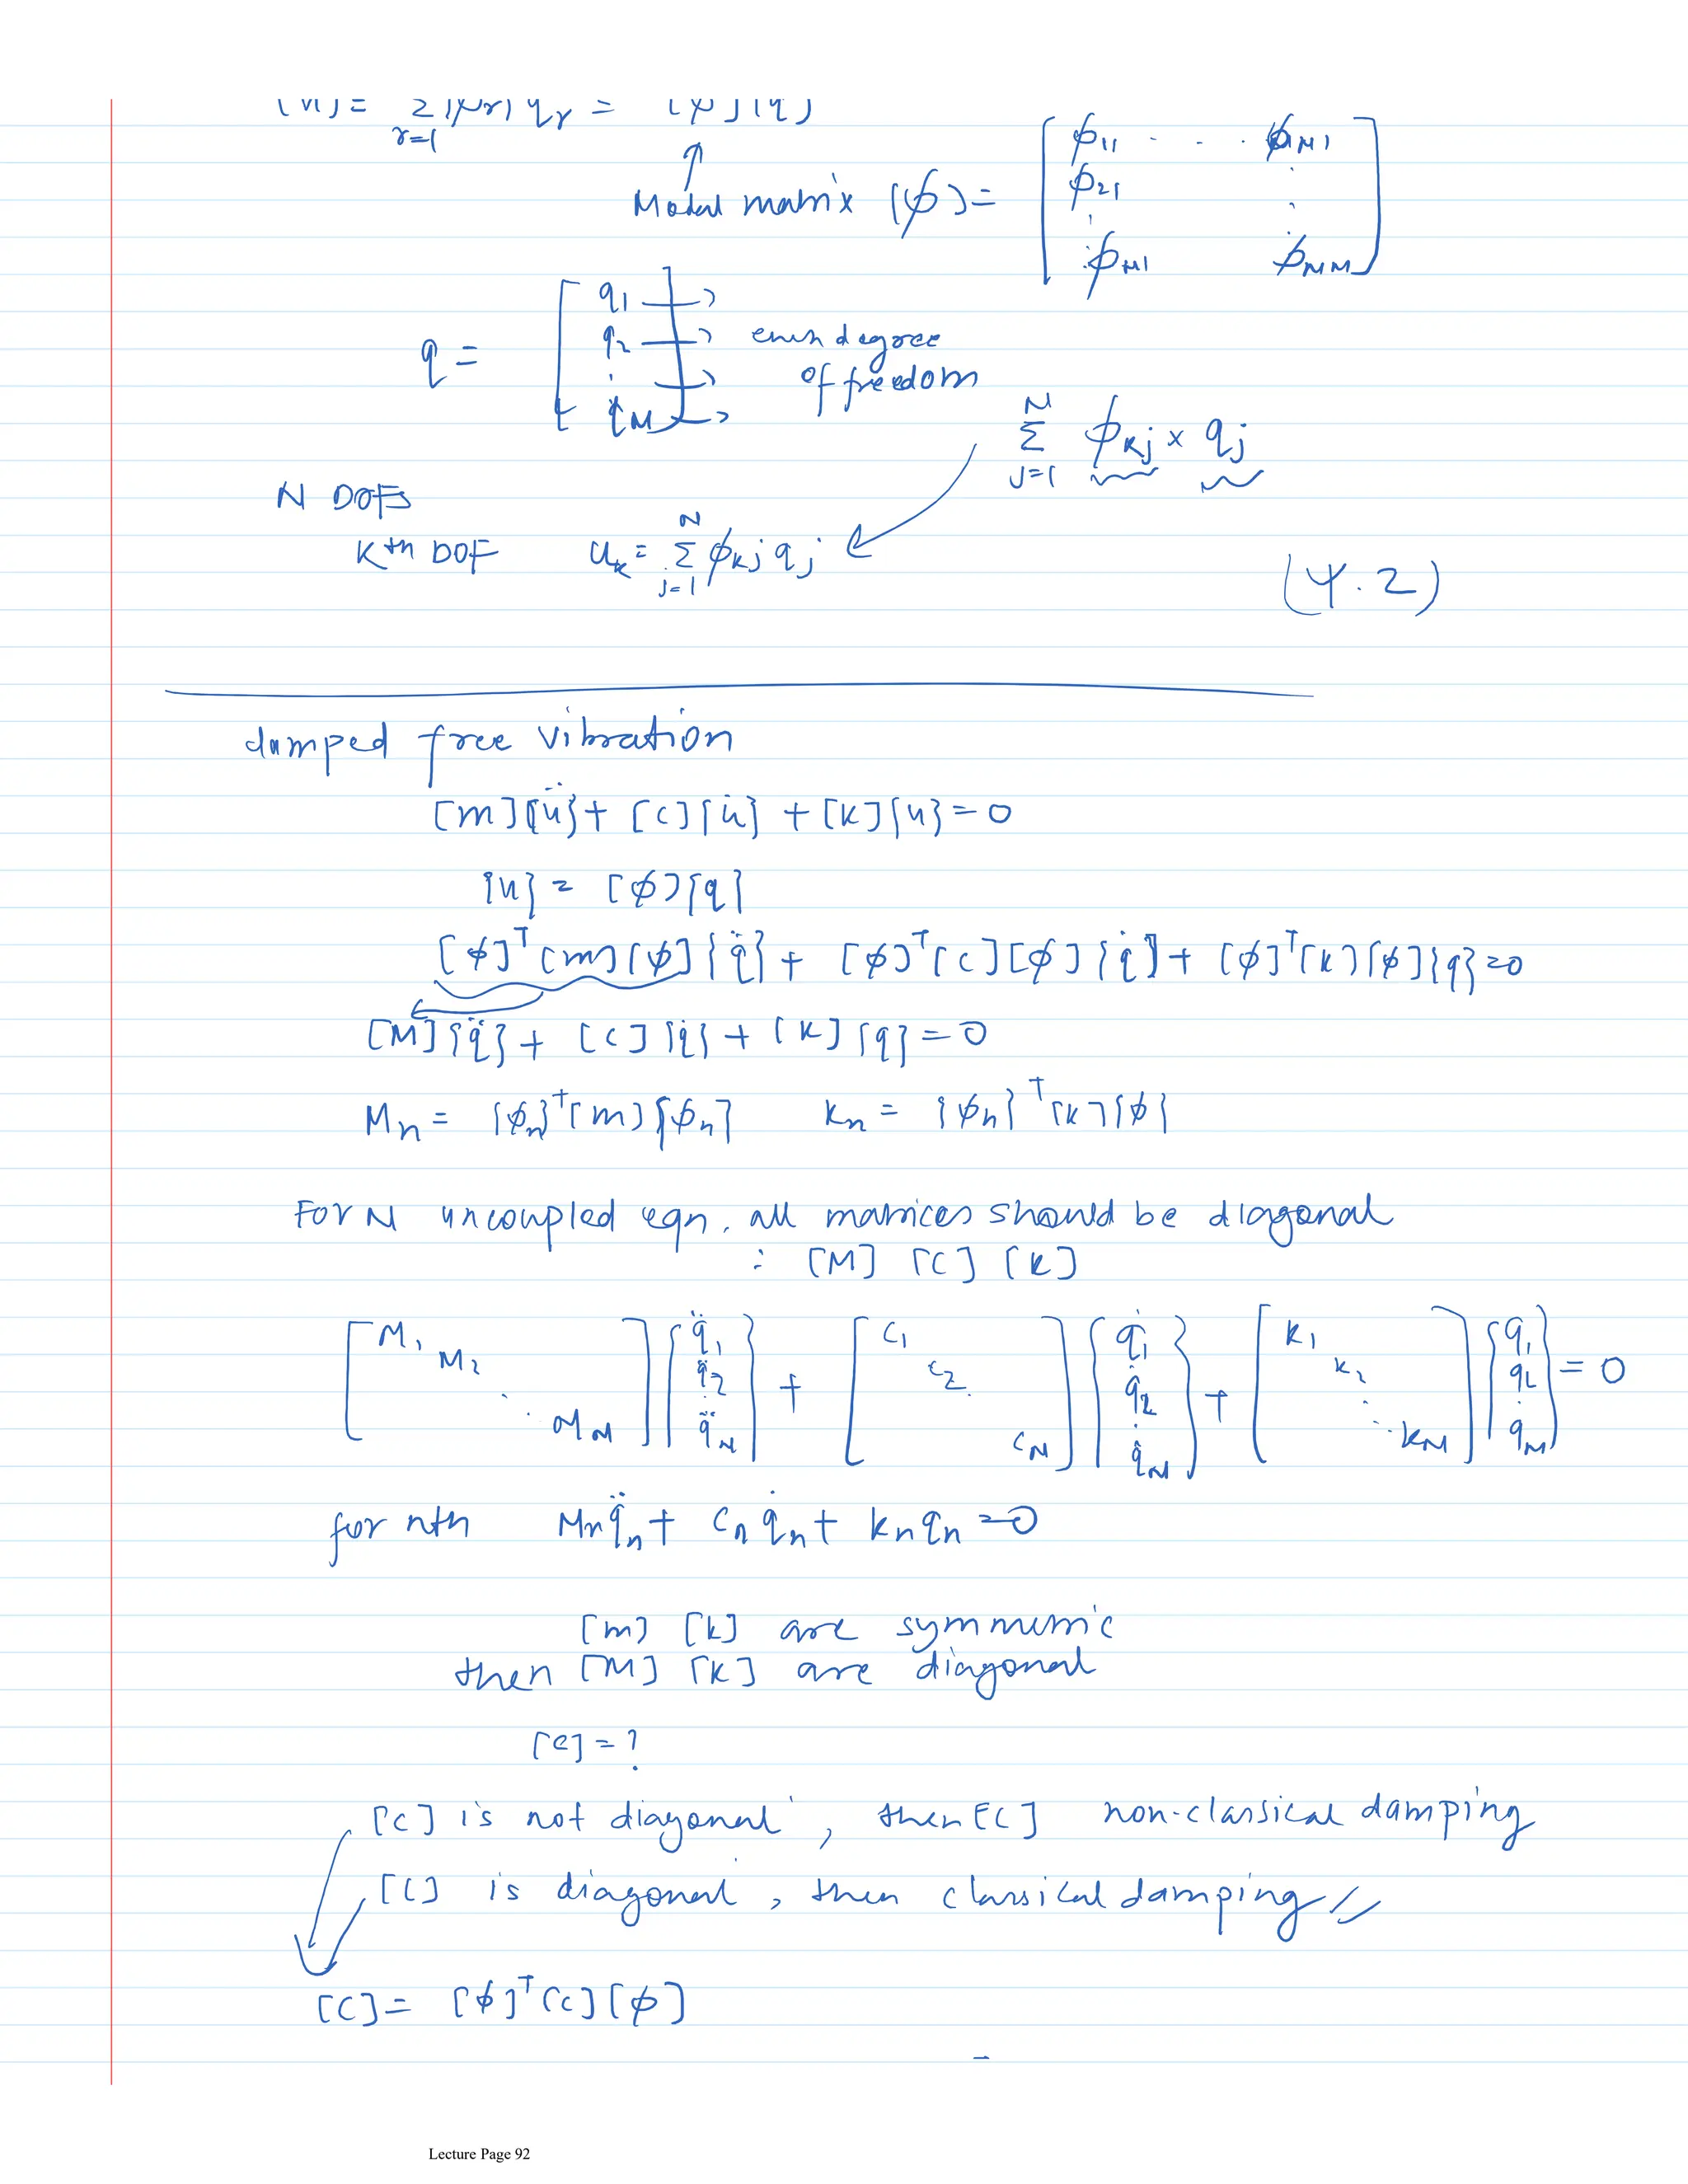 r=1
Modal matrix [ϕ] = [ϕ11 · · · ϕN1
ϕ21
ϕN1 ϕNN]
q = [q1
q2 each degree
of freedom
qN]
N
Σ ϕkj × qj
j=1
N DOFs
Kth DOF uk = Σ(j=1 to N) ϕkj qj
(4.2)
damped free vibration
[m]{ü} + [c]{u̇} + [k]{u} = 0
{u} = [ϕ]{q}
[ϕ]ᵀ[m][ϕ]{q̈} + [ϕ]ᵀ[c][ϕ]{q̇} + [ϕ]ᵀ[k][ϕ]{q} = 0
[M]{q̈} + [C]{q̇} + [K]{q} = 0
Mn = {ϕn}ᵀ[m]{ϕn} Kn = {ϕn}ᵀ[k]{ϕ}
For N uncoupled eqn. all matrices should be diagonal
: [M] [C] [K]
[M1 M2 ⋱ MN] {q̈1 q̈2 q̈N} + [C1 C2 CN] {q̇1 q̇2 q̇N} + [K1 K2 ⋱ KN] {q1 q2 qN} = 0
for nth Mn q̈n + Cn q̇n + Kn qn = 0
[m] [k] are symmetric
then [M] [K] are diagonal
[C] = ?
[C] is not diagonal, then [C] non-classical damping
[C] is diagonal, then classical damping
[C] = [ϕ]ᵀ[c][ϕ]
Lecture Page 92